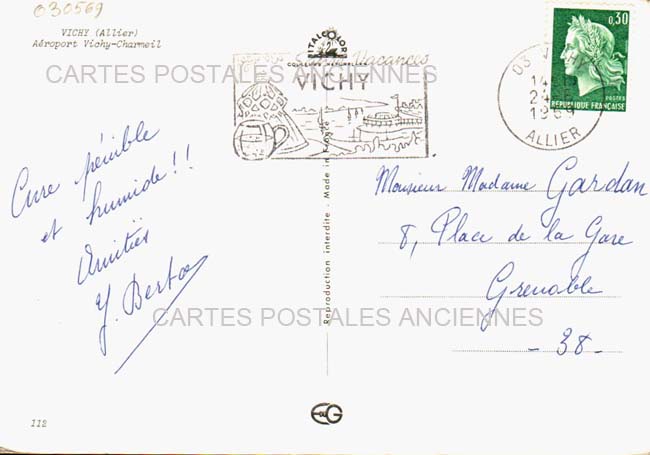 030569
VICHY (Allier)
Aéroport Vichy-Charmeil
ITALCOLOR
Vacances
VICHY
CARTES POSTALES ANCIENNES
0,30
POSTES
REPUBLIQUE FRANÇAISE
03
1969
ALLIER
Cure pénible
et humide!!
Amitiés
Y. Berto
Reproduction interdite . Made in France
Monsieur Madame Gardan
8, Place de la Gare
Grenoble
- 38 -
CARTES POSTALES ANCIENNES
112